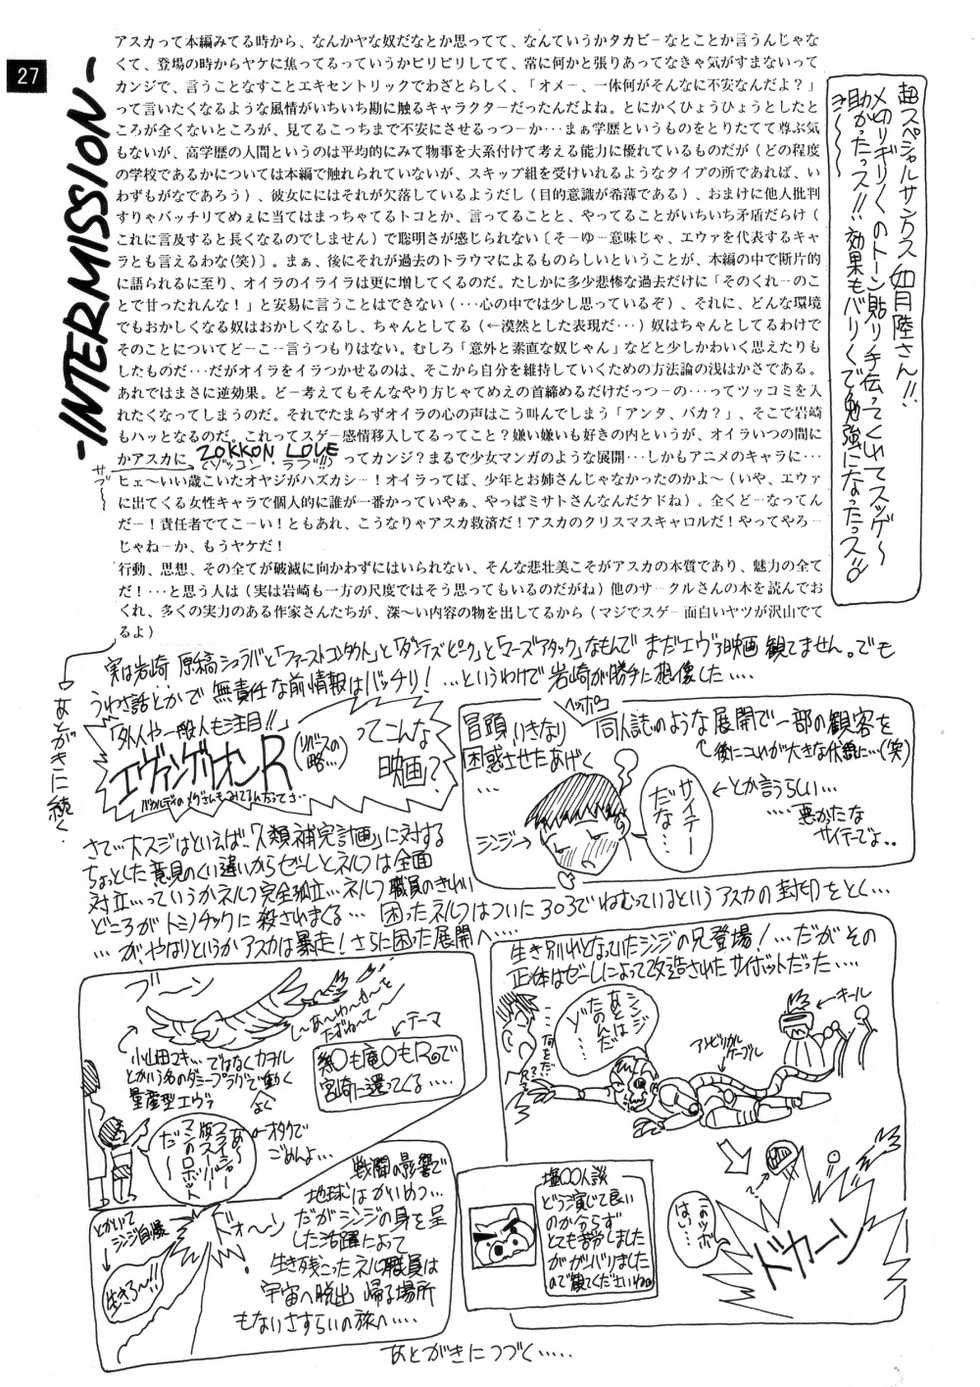 27
-INTERMISSION-
アスカって本編みてる時から、なんかヤな奴だなとか思ってて、なんていうかタカビーなとことか言うんじゃな
くて、登場の時からヤケに焦ってるっていうかピリピリしてて、常に何かと張りあってなきゃ気がすまないって
カンジで、言うことなすことエキセントリックでわざとらしく、「オメー、一体何がそんなに不安なんだよ？」
って言いたくなるような風情がいちいち勘に触るキャラクターだったんだよね。とにかくひょうひょうとしたと
ころが全くないところが、見てるこっちまで不安にさせるっつーか…まぁ学歴というものをとりたてて尊ぶ気
もないが、高学歴の人間というのは平均的にみて物事を大系付けて考える能力に優れているものだが（どの程度
の学校であるかについては本編で触れられていないが、スキップ組を受けいれるようなタイプの所であれば、い
わずもがなであろう）、彼女ににはそれが欠落しているようだし（目的意識が希薄である）、おまけに他人批判
すりゃバッチリてめぇに当てはまっちゃてるトコとか、言ってることと、やってることがいちいち矛盾だらけ（
これに言及すると長くなるのでしません）で聡明さが感じられない〔そーゆー意味じゃ、エヴァを代表するキャ
ラとも言えるわな(笑)〕。まぁ、後にそれが過去のトラウマによるものらしいということが、本編の中で断片的
に語られるに至り、オイラのイライラは更に増してくるのだ。たしかに多少悲惨な過去だけに「そのくれーのこ
とで甘ったれんな！」と安易に言うことはできない（…心の中では少し思っているぞ）、それに、どんな環境
でもおかしくなる奴はおかしくなるし、ちゃんとしてる（←漠然とした表現だ…）奴はちゃんとしてるわけで
そのことについてどーこー言うつもりはない。むしろ「意外と素直な奴じゃん」などと少しかわいく思えたりも
したものだ…だがオイラをイラつかせるのは、そこから自分を維持していくための方法論の浅はかさである。
あれではまさに逆効果。どー考えてもそんなやり方じゃてめえの首締めるだけだっつーの…ってツッコミを入
れたくなってしまうのだ。それでたまらずオイラの心の声はこう叫んでしまう「アンタ、バカ？」、そこで岩崎
もハッとなるのだ。これってスゲー感情移入してるってこと？嫌い嫌いも好きの内というが、オイラいつの間に
かアスカに ZOKKON LOVE ってカンジ？まるで少女マンガのような展開…しかもアニメのキャラに…
（ゾッコン・ラブ!!）
サブ〜〜
ヒェ〜いい歳こいたオヤジがハズカシー！オイラってば、少年とお姉さんじゃなかったのかよ〜（いや、エヴァ
に出てくる女性キャラで個人的に誰が一番かっていやぁ、やっぱミサトさんなんだケドね）。全くどーなってん
だー！責任者でてこーい！ともあれ、こうなりゃアスカ救済だ！アスカのクリスマスキャロルだ！やってやろー
じゃねーか、もうヤケだ！
行動、思想、その全てが破滅に向かわずにはいられない、そんな悲壮美こそがアスカの本質であり、魅力の全て
だ！…と思う人は（実は岩崎も一方の尺度ではそう思ってもいるのだがね）他のサークルさんの本を読んでお
くれ、多くの実力のある作家さんたちが、深〜い内容の物を出してるから（マジでスゲー面白いヤツが沢山でて
るよ）
→あとがきに続く。
超スペシャルサンクス 如月陸さん!!
〆切りギリギリのトーン貼り手伝ってくれてスッゲ〜
助かったっス!! 効果もバリバリで勉強になったっス
ヨ〜〜
実は岩崎 原稿シュラバと「ファーストコンタクト」と「ダンテズ・ピーク」と「マーズアタック」なもんで まだエヴァ映画 観てません。でも
うわさ話とかで 無責任な前情報はバッチリ！…というわけで岩崎が勝手に想像した…
「外人や一般人も注目!!」
エヴァンゲリオンR
（リバースの略…）
ってこんな映画？
冒頭いきなり ヘッポコ同人誌のような展開で一部の観客を
困惑させたあげく
…
後にコレが大きな伏線に…(笑)
シンジ→
サイテーだな…
←とか言うらしい…
…悪かたな
サイテーでよ..
さて…大スジはといえば..「人類補完計画」に対する
ちょっとした意見のくい違いからゼーレとネルフは全面
対立…っていうかネルフ完全孤立…ネルフ職員のきれい
どころがトミノチックに殺されまくる… 困ったネルフはついに303でねむっているというアスカの封印をとく…
…が、やはりというかアスカは暴走！さらに困った展開へ…
ブーン
し〜あ〜わ〜せ〜を
たばね〜て〜
小山田マキ…ではなくカヲル
とかいう名のダミープラグで動く
量産型エヴァ
よく
←テーマ
鉄〇も庵〇もRので
宮崎に還ってくる…
あ〜
版フライジャー
マンのロボット
だ〜
←オタクで
ごめんよ…
生き別れとなっていたシンジの兄登場！…だがその
正体はゼーレによって改造されたサイボットだった…
…何をだ…
シンジ
あとは
たのんだ
ゾ…
アンビリカル
ケーブル
←キール
このツボ
はいい…
ドカーン
塩〇〇人談
どう演じて良い
のか分らず
とても苦労しました
がガンバりました
ので観てくださいね
とかいて
シンジ自爆
生きろ〜!!
ドォ〜ン
戦闘の影響で
地球はかいめつ…
だがシンジの身を呈
した活躍によって
生き残こったネルフ職員は
宇宙へ脱出 帰る場所
もないさすらいの旅へ…
あとがきにつづく…